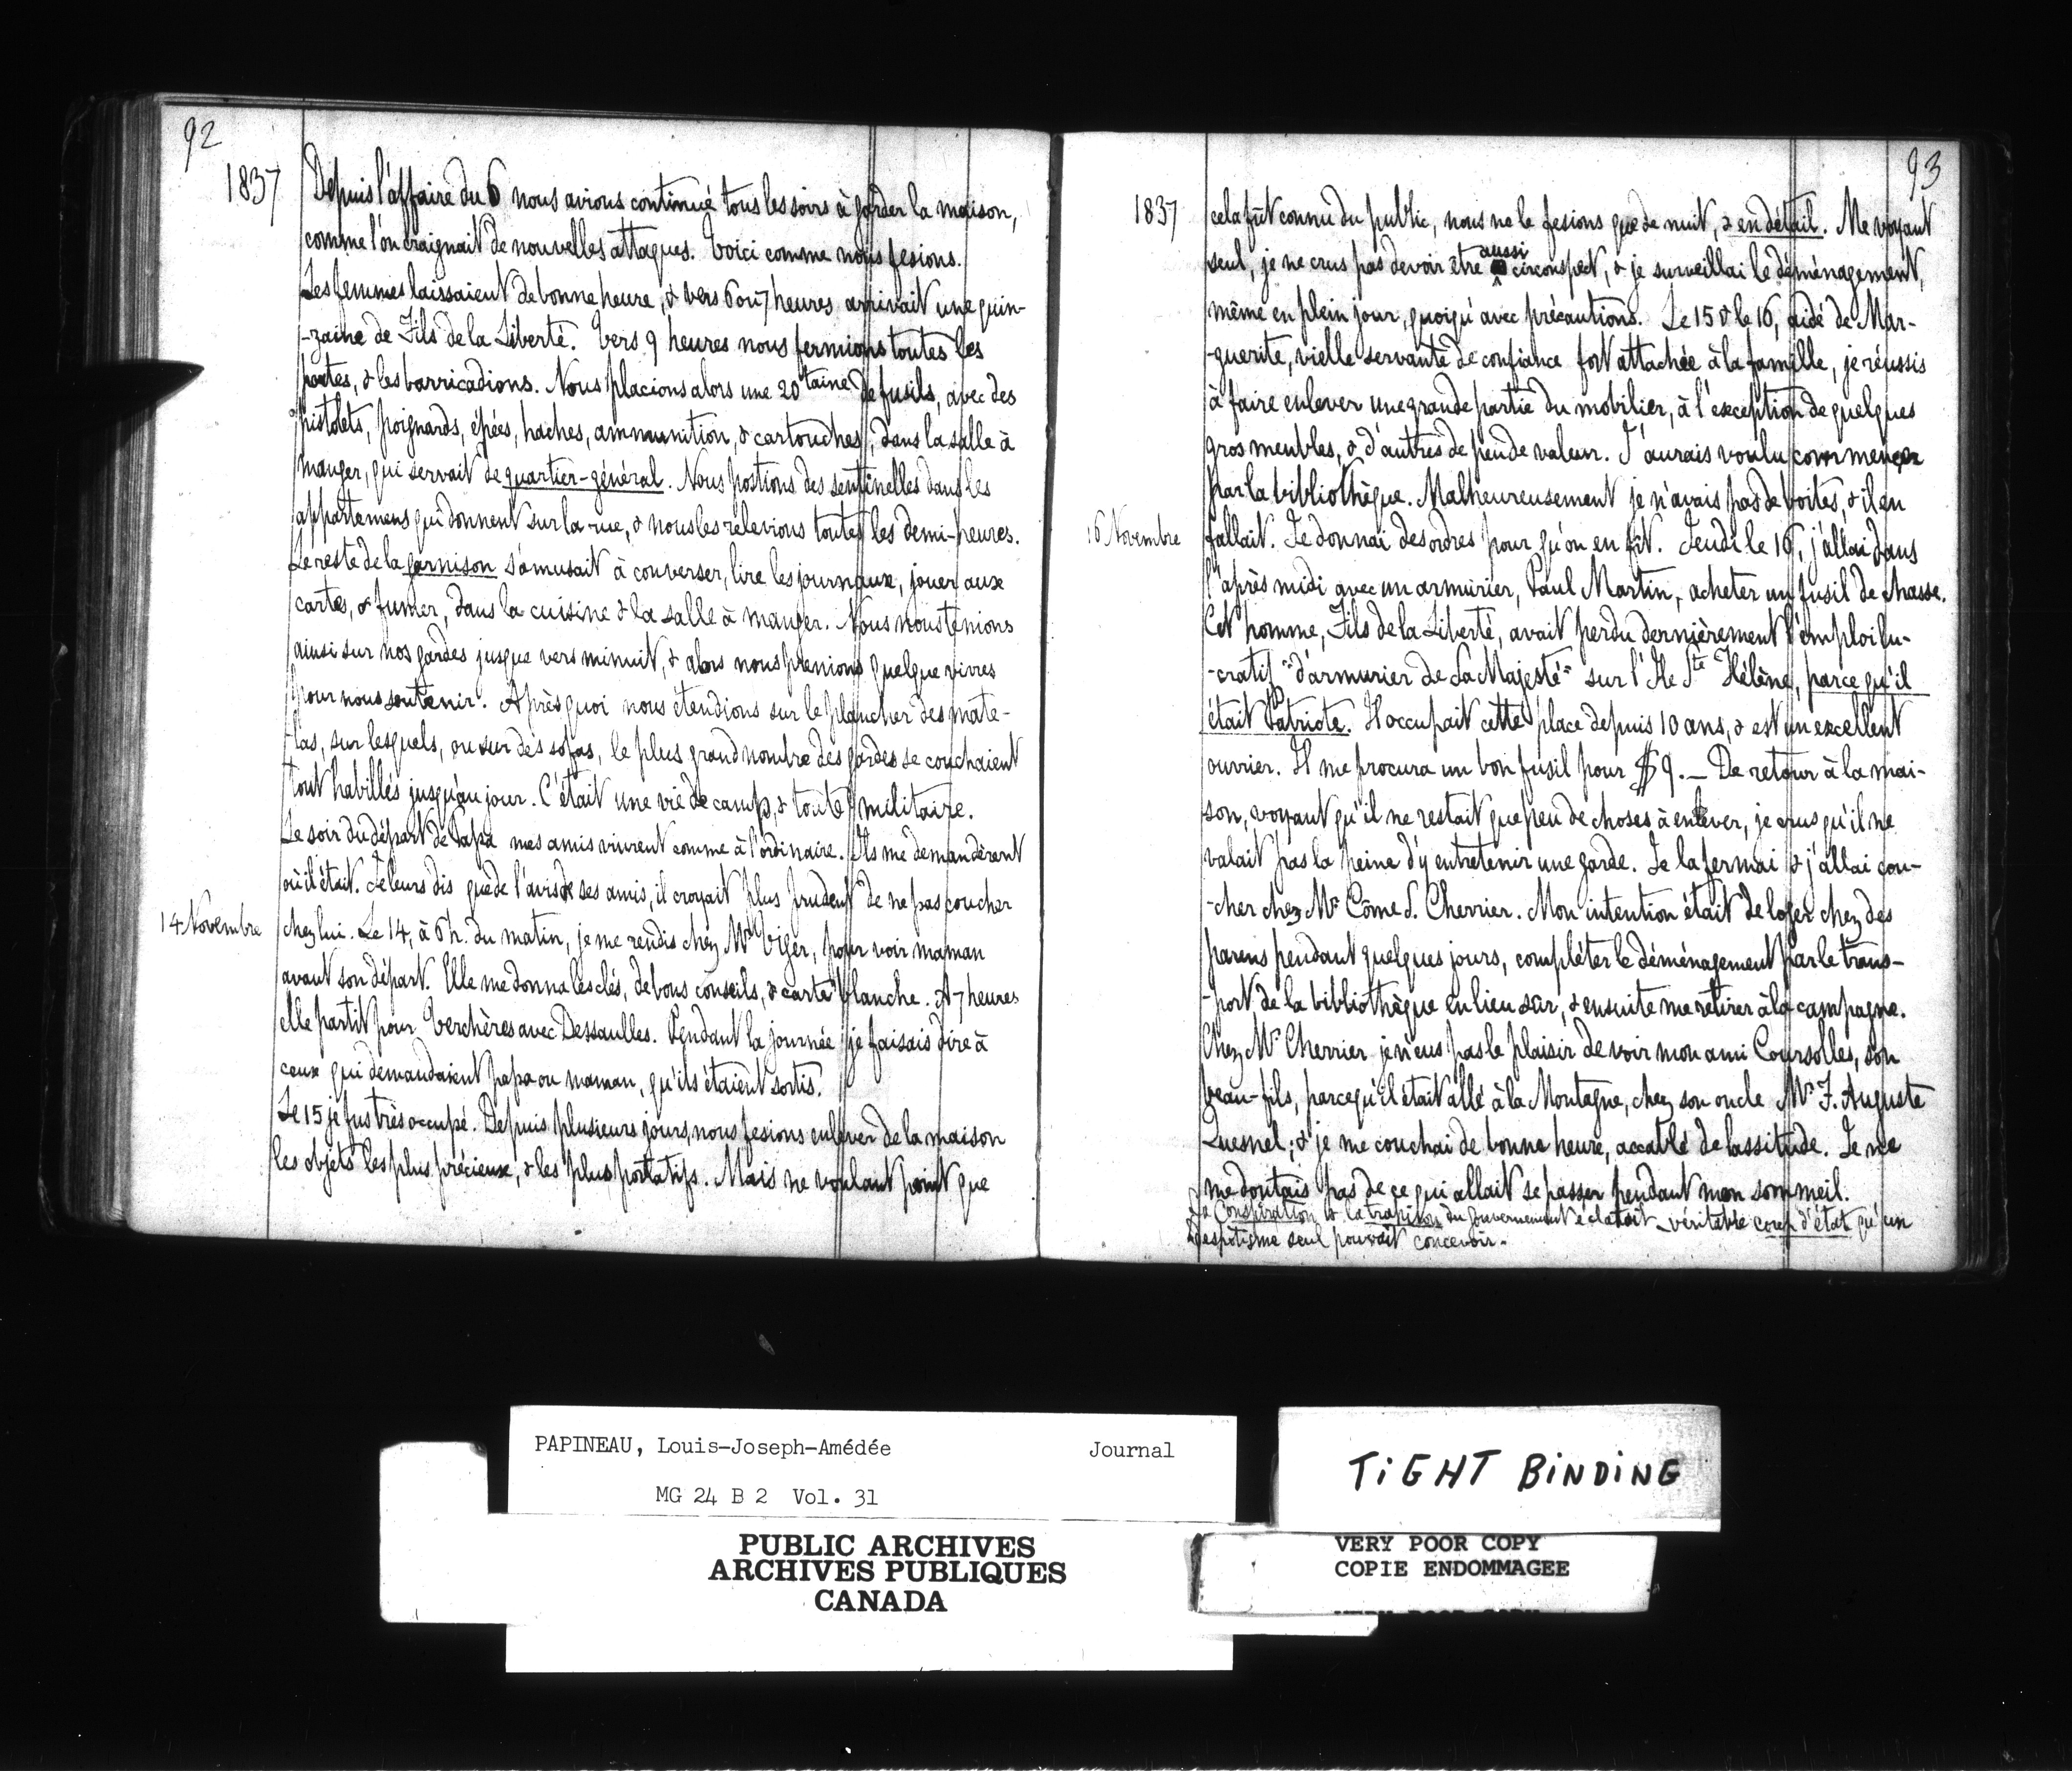 92
1837
Depuis l'affaire du 6 nous avions continué tous les soirs à garder la maison,
comme l'on craignait de nouvelles attaques. Voici comme nous fesions.
Les femmes laissaient de bonne heure, & vers 6 ou 7 heures arrivait une quin-
-zaine de Fils de la Liberté. Vers 9 heures nous fermions toutes les
portes, & les barricadions. Nous placions alors une 20taine de fusils, avec des
pistolets, poignards, épées, haches, ammunition, & cartouches, dans la salle à
manger, qui servait de quartier-général. Nous postions des sentinelles dans les
appartemens qui donnent sur la rue, & nous les relevions toutes les demi-heures.
Le reste de la garnison s'amusait à converser, lire les journaux, jouer aux
cartes, & fumer, dans la cuisine & la salle à manger. Nous nous tenions
ainsi sur nos gardes jusque vers minuit, & alors nous prenions quelque vivres
pour nous soutenir. Après quoi nous étendions sur le plancher des mate-
-las, sur lesquels, ou sur des sofas, le plus grand nombre des gardes se couchaient
tout habillés jusqu'au jour. C'était une vie de camp, & toute militaire.
Le soir du départ de Papa mes amis vinrent comme à l'ordinaire. Ils me demandèrent
où il était. Je leurs dis que de l'avis de ses amis, il croyait plus prudent de ne pas coucher
14 Novembre
chez lui. Le 14, à 6 h. du matin, je me rendis chez Mr Viger, pour voir maman
avant son départ. Elle me donna les clés, de bons conseils, & carte blanche. A 7 heures
elle partit pour Verchères avec Dessaulles. Pendant la journée je faisais dire à
ceux qui demandaient papa ou maman, qu'ils étaient sortis.
Le 15 je fus très occupé. Depuis plusieurs jours, nous fesions enlever de la maison
les objets les plus précieux, & les plus portatifs. Mais ne voulant point que
93
1837
cela fût connu du public, nous ne le fesions que de nuit, & en détail. Me voyant
seul, je ne crus pas devoir être aussi circonspect, & je surveillai le déménagement,
même en plein jour, quoiqu'avec précautions. Le 15 & le 16, aidé de Mar-
-guerite, vielle servante de confiance fort attachée à la famille, je réussis
à faire enlever une grande partie du mobilier, à l'exception de quelques
gros meubles, & d'autres de peu de valeur. J'aurais voulu commencer
par la bibliothèque. Malheureusement je n'avais pas de boites, & il en
16 Novembre
fallait. Je donnai des ordres pour qu'on en fît. Jeudi le 16, j'allai dans
l'après midi avec un armurier, Paul Martin, acheter un fusil de chasse.
Cet homme, Fils de la Liberté, avait perdu dernièrement l'emploi lu-
-cratif "d'armurier de Sa Majesté" sur l'Ile Ste Hélène, parce qu'il
était Patriote. Il occupait cette place depuis 10 ans, & est un excellent
ouvrier. Il me procura un bon fusil pour $9. — De retour à la mai-
son, voyant qu'il ne restait que peu de choses à enlever, je crus qu'il ne
valait pas la peine d'y entretenir une garde. Je la fermai & j'allai cou-
-cher chez Mr Côme S. Cherrier. Mon intention était de loger chez des
parens pendant quelques jours, compléter le déménagement par le trans-
-port de la bibliothèque en lieu sûr, & ensuite me retirer à la campagne.
Chez Mr Cherrier je n'eus pas le plaisir de voir mon ami Coursolles, son
beau-fils, parcequ'il était allé à la Montagne, chez son oncle Mr F. Auguste
Quesnel; & je me couchai de bonne heure, accablé de lassitude. Je ne
me doutais pas de ce qui allait se passer pendant mon sommeil.
La Conspiration & la trahison du gouvernement éclatait véritable coup d'état qu'un
Despotisme seul pouvait concevoir.
PAPINEAU, Louis-Joseph-Amédée Journal
MG 24 B 2 Vol. 31
PUBLIC ARCHIVES
ARCHIVES PUBLIQUES
CANADA
TIGHT BINDING
VERY POOR COPY
COPIE ENDOMMAGEE
VERY POOR COPY